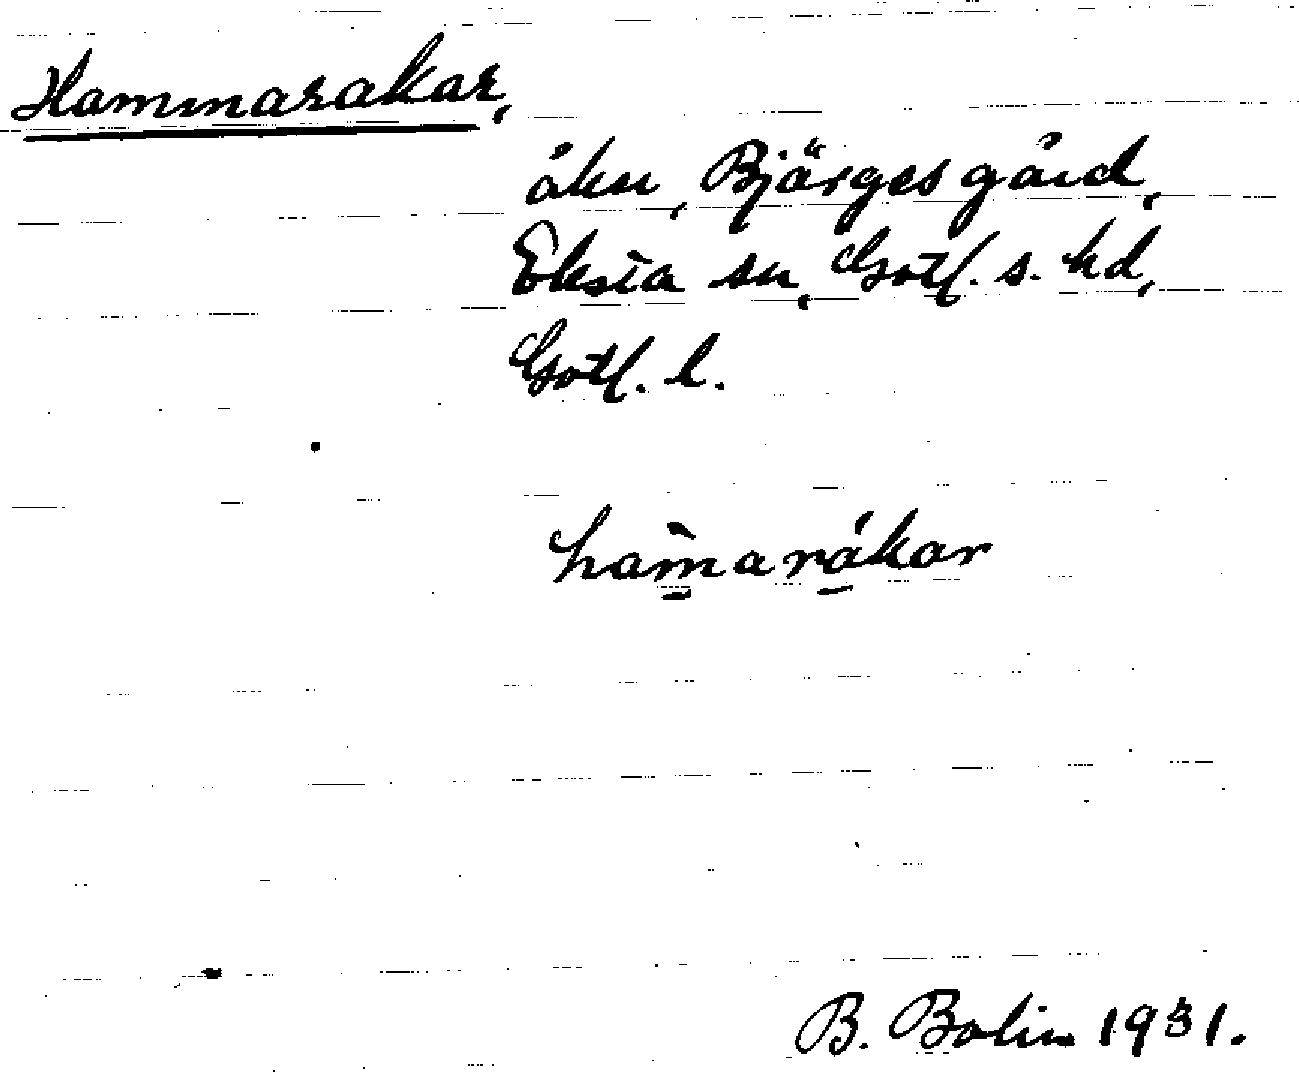 Hammarakar,
åkn, Bjärges gård,
Eksta sn, Gotl. s. hd,
Gotl. l.
ham̀arákar
B. Bolin 1931.